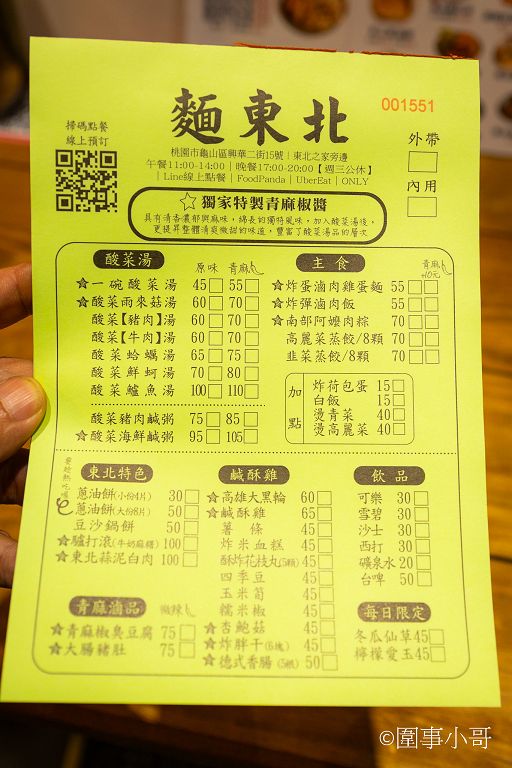 麵東北
001551
掃碼點餐
線上預訂
外帶
內用
桃園市龜山區興華二街15號|東北之家旁邊
午餐11:00-14:00|晚餐17:00-20:00【週三公休】
|Line線上點餐|FoodPanda|UberEat|ONLY
☆獨家特製青麻椒醬
具有清香濃郁與麻味,綿長的獨特風味,加入酸菜湯後,
更提昇整體清爽微甜的味道,豐富了酸菜湯品的層次
酸菜湯 原味 青麻
☆一碗酸菜湯 45 55
☆酸菜雨來菇湯 60 70
酸菜【豬肉】湯 60 70
酸菜【牛肉】湯 60 70
酸菜蛤蠣湯 65 75
酸菜鮮蚵湯 70 80
酸菜鱸魚湯 100 110
酸菜豬肉鹹粥 75 85
☆酸菜海鮮鹹粥 95 105
主食 青麻+10元
☆炸蛋滷肉雞蛋麵 55
☆炸彈滷肉飯 55
☆南部阿嬤肉粽 70
高麗菜蒸餃/8顆 70
韭菜蒸餃/8顆 70
加點
炸荷包蛋 15
白飯 15
燙青菜 40
燙高麗菜 40
東北特色
要趁熱吃喔
蔥油餅(小份4片) 30
蔥油餅(大份8片) 50
豆沙鍋餅 50
☆驢打滾(牛奶麻糬) 100
☆東北蒜泥白肉 100
青麻滷品 微辣
☆青麻椒臭豆腐 75
☆大腸豬肚 75
鹹酥雞
☆高雄大黑輪 60
☆鹹酥雞 65
薯條 45
炸米血糕 45
酥炸花枝丸(5顆) 45
四季豆 45
玉米筍 45
糯米椒 45
☆杏鮑菇 45
☆炸胖干(6塊) 45
☆德式香腸(5根) 50
飲品
可樂 30
雪碧 30
沙士 30
西打 30
礦泉水 20
台啤 50
每日限定
冬瓜仙草 45
檸檬愛玉 45
©圍事小哥